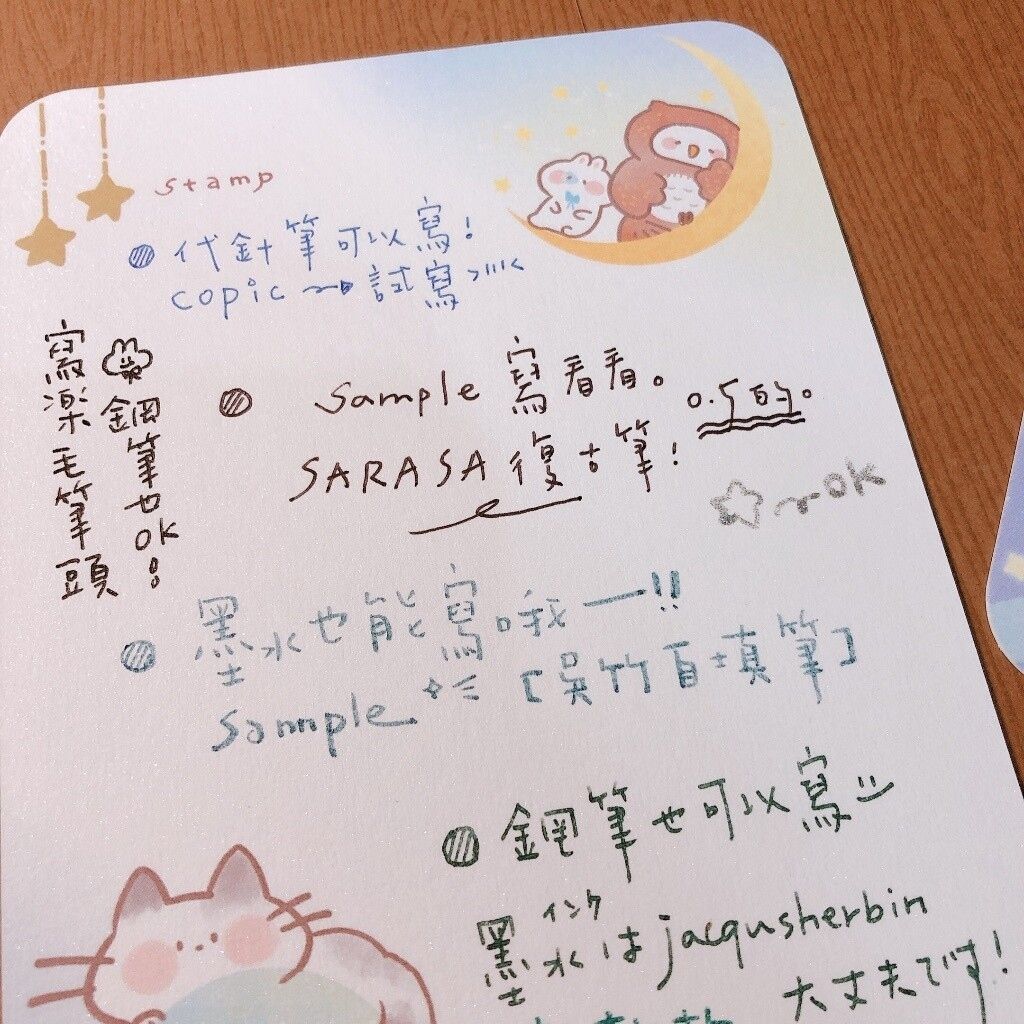 stamp
代針筆可以寫!
copic → 試寫
鋼筆也OK!
寫樂毛筆頭
sample 寫看看。
0.5的。
SARASA 復古筆!
~OK
墨水也能寫哦一!!
Sample 【吳竹自填筆】
鋼筆也可以寫
インク
墨水は jacqusherbin
大丈夫です!